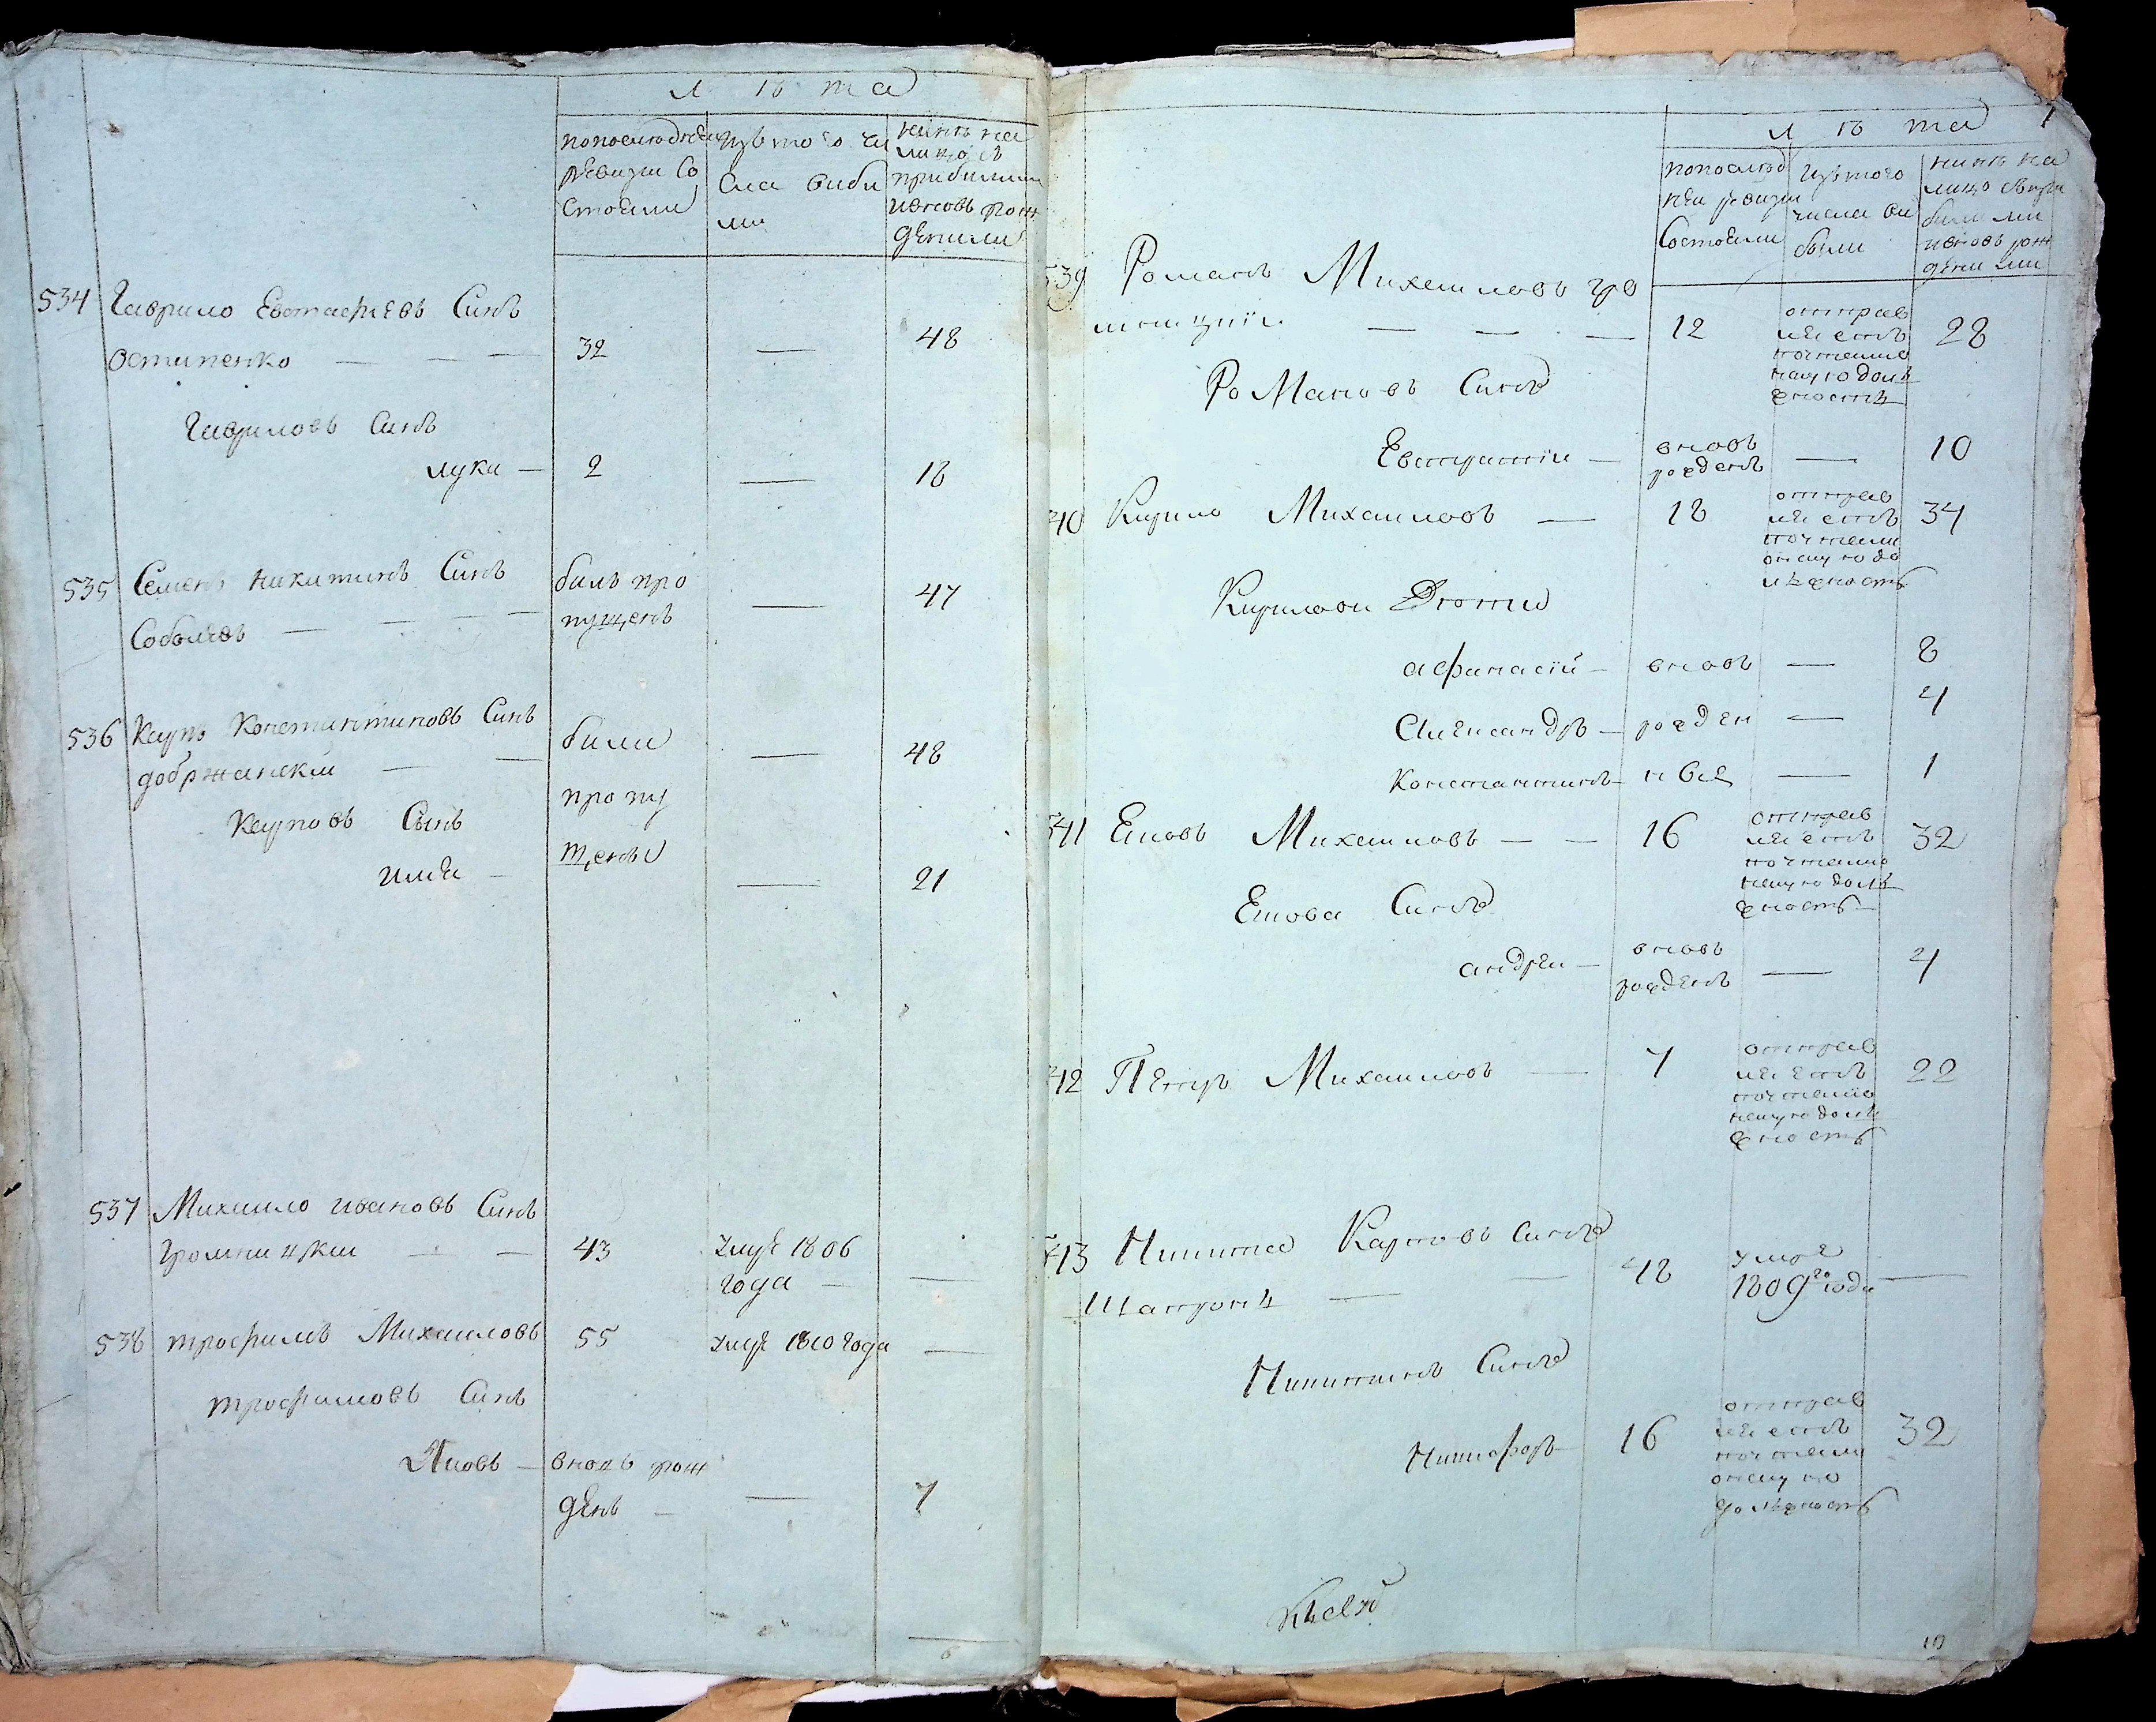 лѣта
попослѣдней ревизіи Состояли
изъ того числа выбыли
нинѣ на лицо съ прибылими ивновь рожденими
534 Гаврило Евстафіевъ Синъ
Остапенко — — — 32 — 48
Гавриловъ Синъ
лука — 2 — 18
535 Семенъ никитинъ Синъ билъ про
Соболевъ — — — — пущенъ — 47
536 Карпъ Констинтиновъ Синъ били
добржанский — — — 48
Карповъ Сынъ пропу
илія — щени — 21
537 Михаило ивановъ Синъ
Громницкии — — 43 умре 1806
года — —
538 трофимъ Михаиловъ 55 умре 1810 года —
трофимовъ Синъ
Яковъ — вновь рож
денъ — — 7
лѣта
попослѣд
ней ревизіи
Состояли
изъ того
числа вы
были
нинѣ на
лицо съпри
били ми
ивновь рож
дени ми
539 Романъ Михаиловъ гро
мницкій — — — 12 отправ
ляетъ
почталио
нскую долж
ность 28
Романовъ Синъ
Евстратіи — вновь
рожденъ — 10
540 Кирило Михаиловъ — 18 отправ
ляетъ
почтали
онскую до
лжность 34
Кирилови Дѣти
афанасій — вновь — 8
Александръ — рожден — 4
Константинъ — ние — 1
541 Яковъ Михаиловъ — — 16 отправ
ляетъ
почталио
нскую долж
ность — 32
Якова Синъ
андреи — вновь
рожденъ — 4
542 Петръ Михаиловъ — 7 отправ
ляетъ
почталио
нскую долж
ность 22
543 Никита Карповъ Синъ
— 48 умре
1809го года —
Никитинъ Синъ
Никифоръ — 16 отправ
ляетъ
почтали
онскую
должность 32